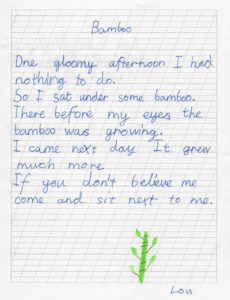 Bamboo
One gloomy afternoon I had
nothing to do.
So I sat under some bamboo.
There before my eyes the
bamboo was growing.
I came next day It grew
much more.
If you don't believe me
come and sit next to me.
Lou